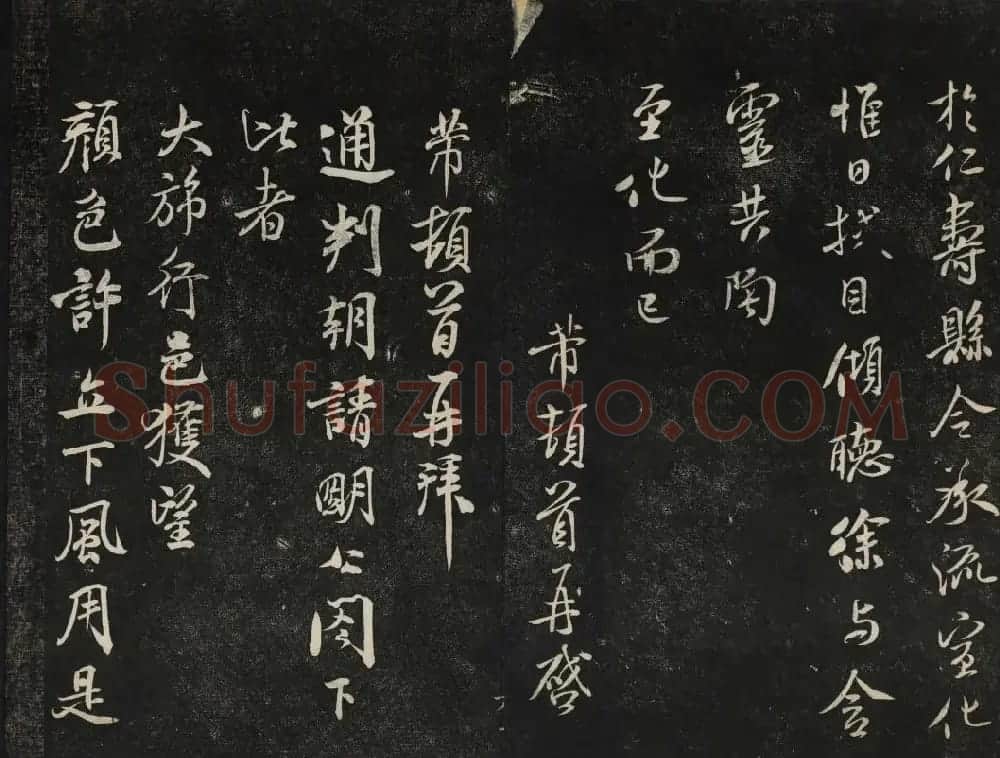 於仁壽縣令承流宣化
惟日拭目傾聽徐与含
靈共陶
至化而已
芾頓首再啓
芾頓首再拜
通判朝請明公閣下
比者
大旆行邑獲望
顏色許立下風用是
Shufaziliao.COM